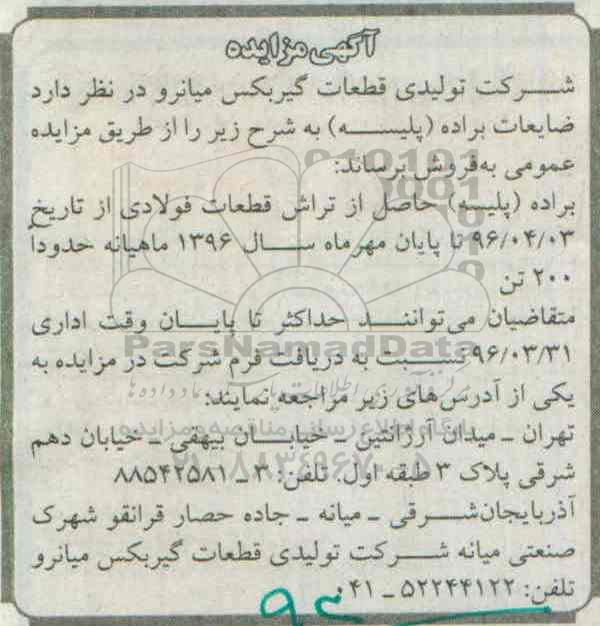 آگهی مزایده
شرکت تولیدی قطعات گیربکس میانرو در نظر دارد
ضایعات براده (پلیسه) به شرح زیر را از طریق مزایده
عمومی به‌فروش برساند:
براده (پلیسه) حاصل از تراش قطعات فولادی از تاریخ
۹۶/۰۴/۰۳ تا پایان مهرماه سال ۱۳۹۶ ماهیانه حدوداً
۲۰۰ تن
متقاضیان می‌توانند حداکثر تا پایان وقت اداری
۹۶/۰۳/۳۱ نسبت به دریافت فرم شرکت در مزایده به
یکی از آدرس‌های زیر مراجعه نمایند:
تهران ـ میدان آرژانتین ـ خیابان بیهقی ـ خیابان دهم
شرقی پلاک ۳ طبقه اول. تلفن: ۳ ـ ۸۸۵۴۲۵۸۱
آذربایجان‌شرقی ـ میانه ـ جاده حصار قرانقو شهرک
صنعتی میانه شرکت تولیدی قطعات گیربکس میانرو
تلفن: ۵۲۲۴۴۱۲۲ ـ ۰۴۱
ParsNamadData
پایگاه اطلاع رسانی مناقصه و مزایده